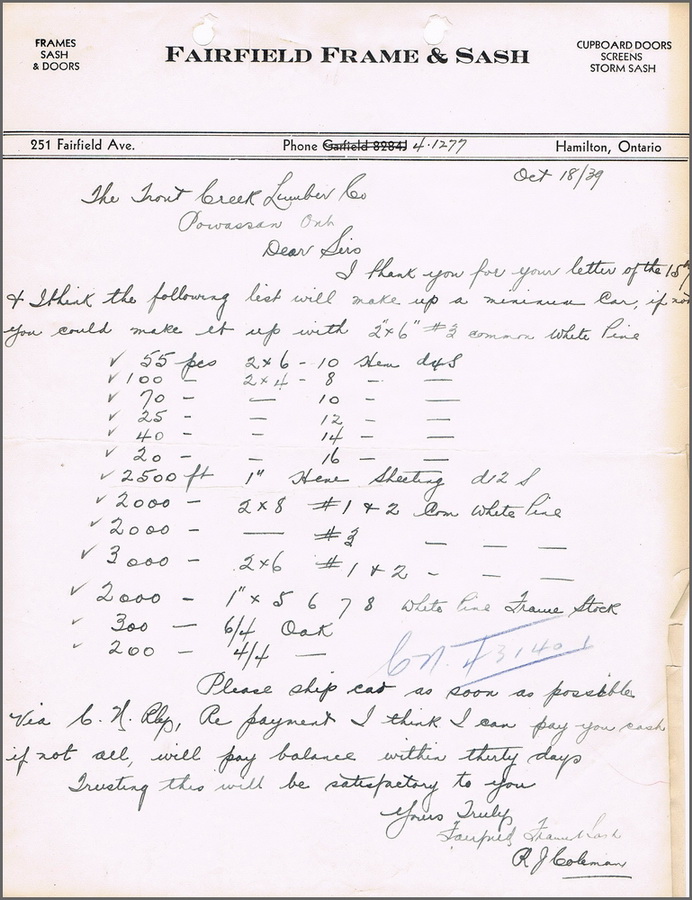 FRAMES
SASH
& DOORS
FAIRFIELD FRAME & SASH
CUPBOARD DOORS
SCREENS
STORM SASH
251 Fairfield Ave.
Phone Garfield 8284J 4-1277
Hamilton, Ontario
Oct 18/39
The Trout Creek Lumber Co
Powassan Ont
Dear Sirs
I thank you for your letter of the 15th
& I think the following list will make up a minimum Car, if not
you could make it up with 2"x6" #3 common White Pine
✓ 55 pcs 2x6 - 10 Hem d4S
✓ 100 - 2x4 - 8 - —
✓ 70 - — 10 - —
✓ 25 - — 12 - —
✓ 40 - - 14 - —
✓ 20 - - 16 - —
✓ 2500 ft 1" Heme Sheeting d12 S
✓ 2000 - 2x8 #1 & 2 Com White Pine
✓ 2000 - — #3 — — —
✓ 3000 - 2x6 #1 & 2 - — —
✓ 2000 - 1" x 5 6 7 8 White Pine Frame Stock
✓ 300 — 6/4 Oak
✓ 200 — 4/4 —
CN. 431401
Please ship car as soon as possible
Via C. N. Rly, Re payment I think I can pay you cash
if not all, will pay balance within thirty days
Trusting this will be satisfactory to you
Yours Truly
Fairfield Frame & Sash
R J Coleman